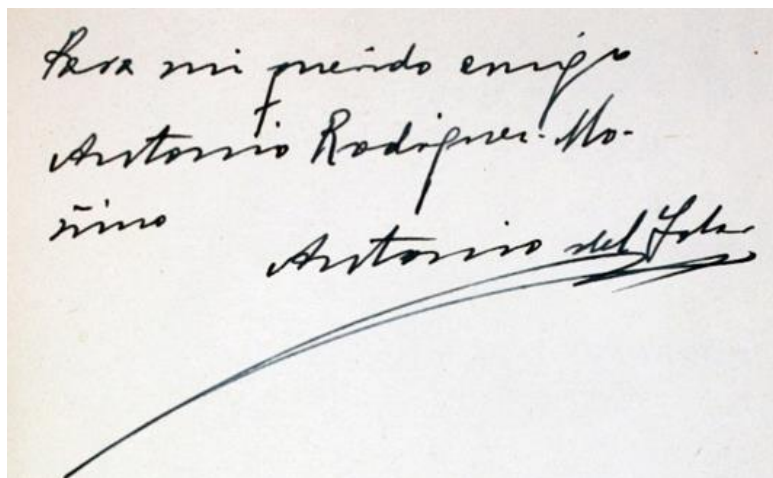 Para mi querido amigo
Antonio Rodriguez-Mo-
ñino
Antonio del Solar